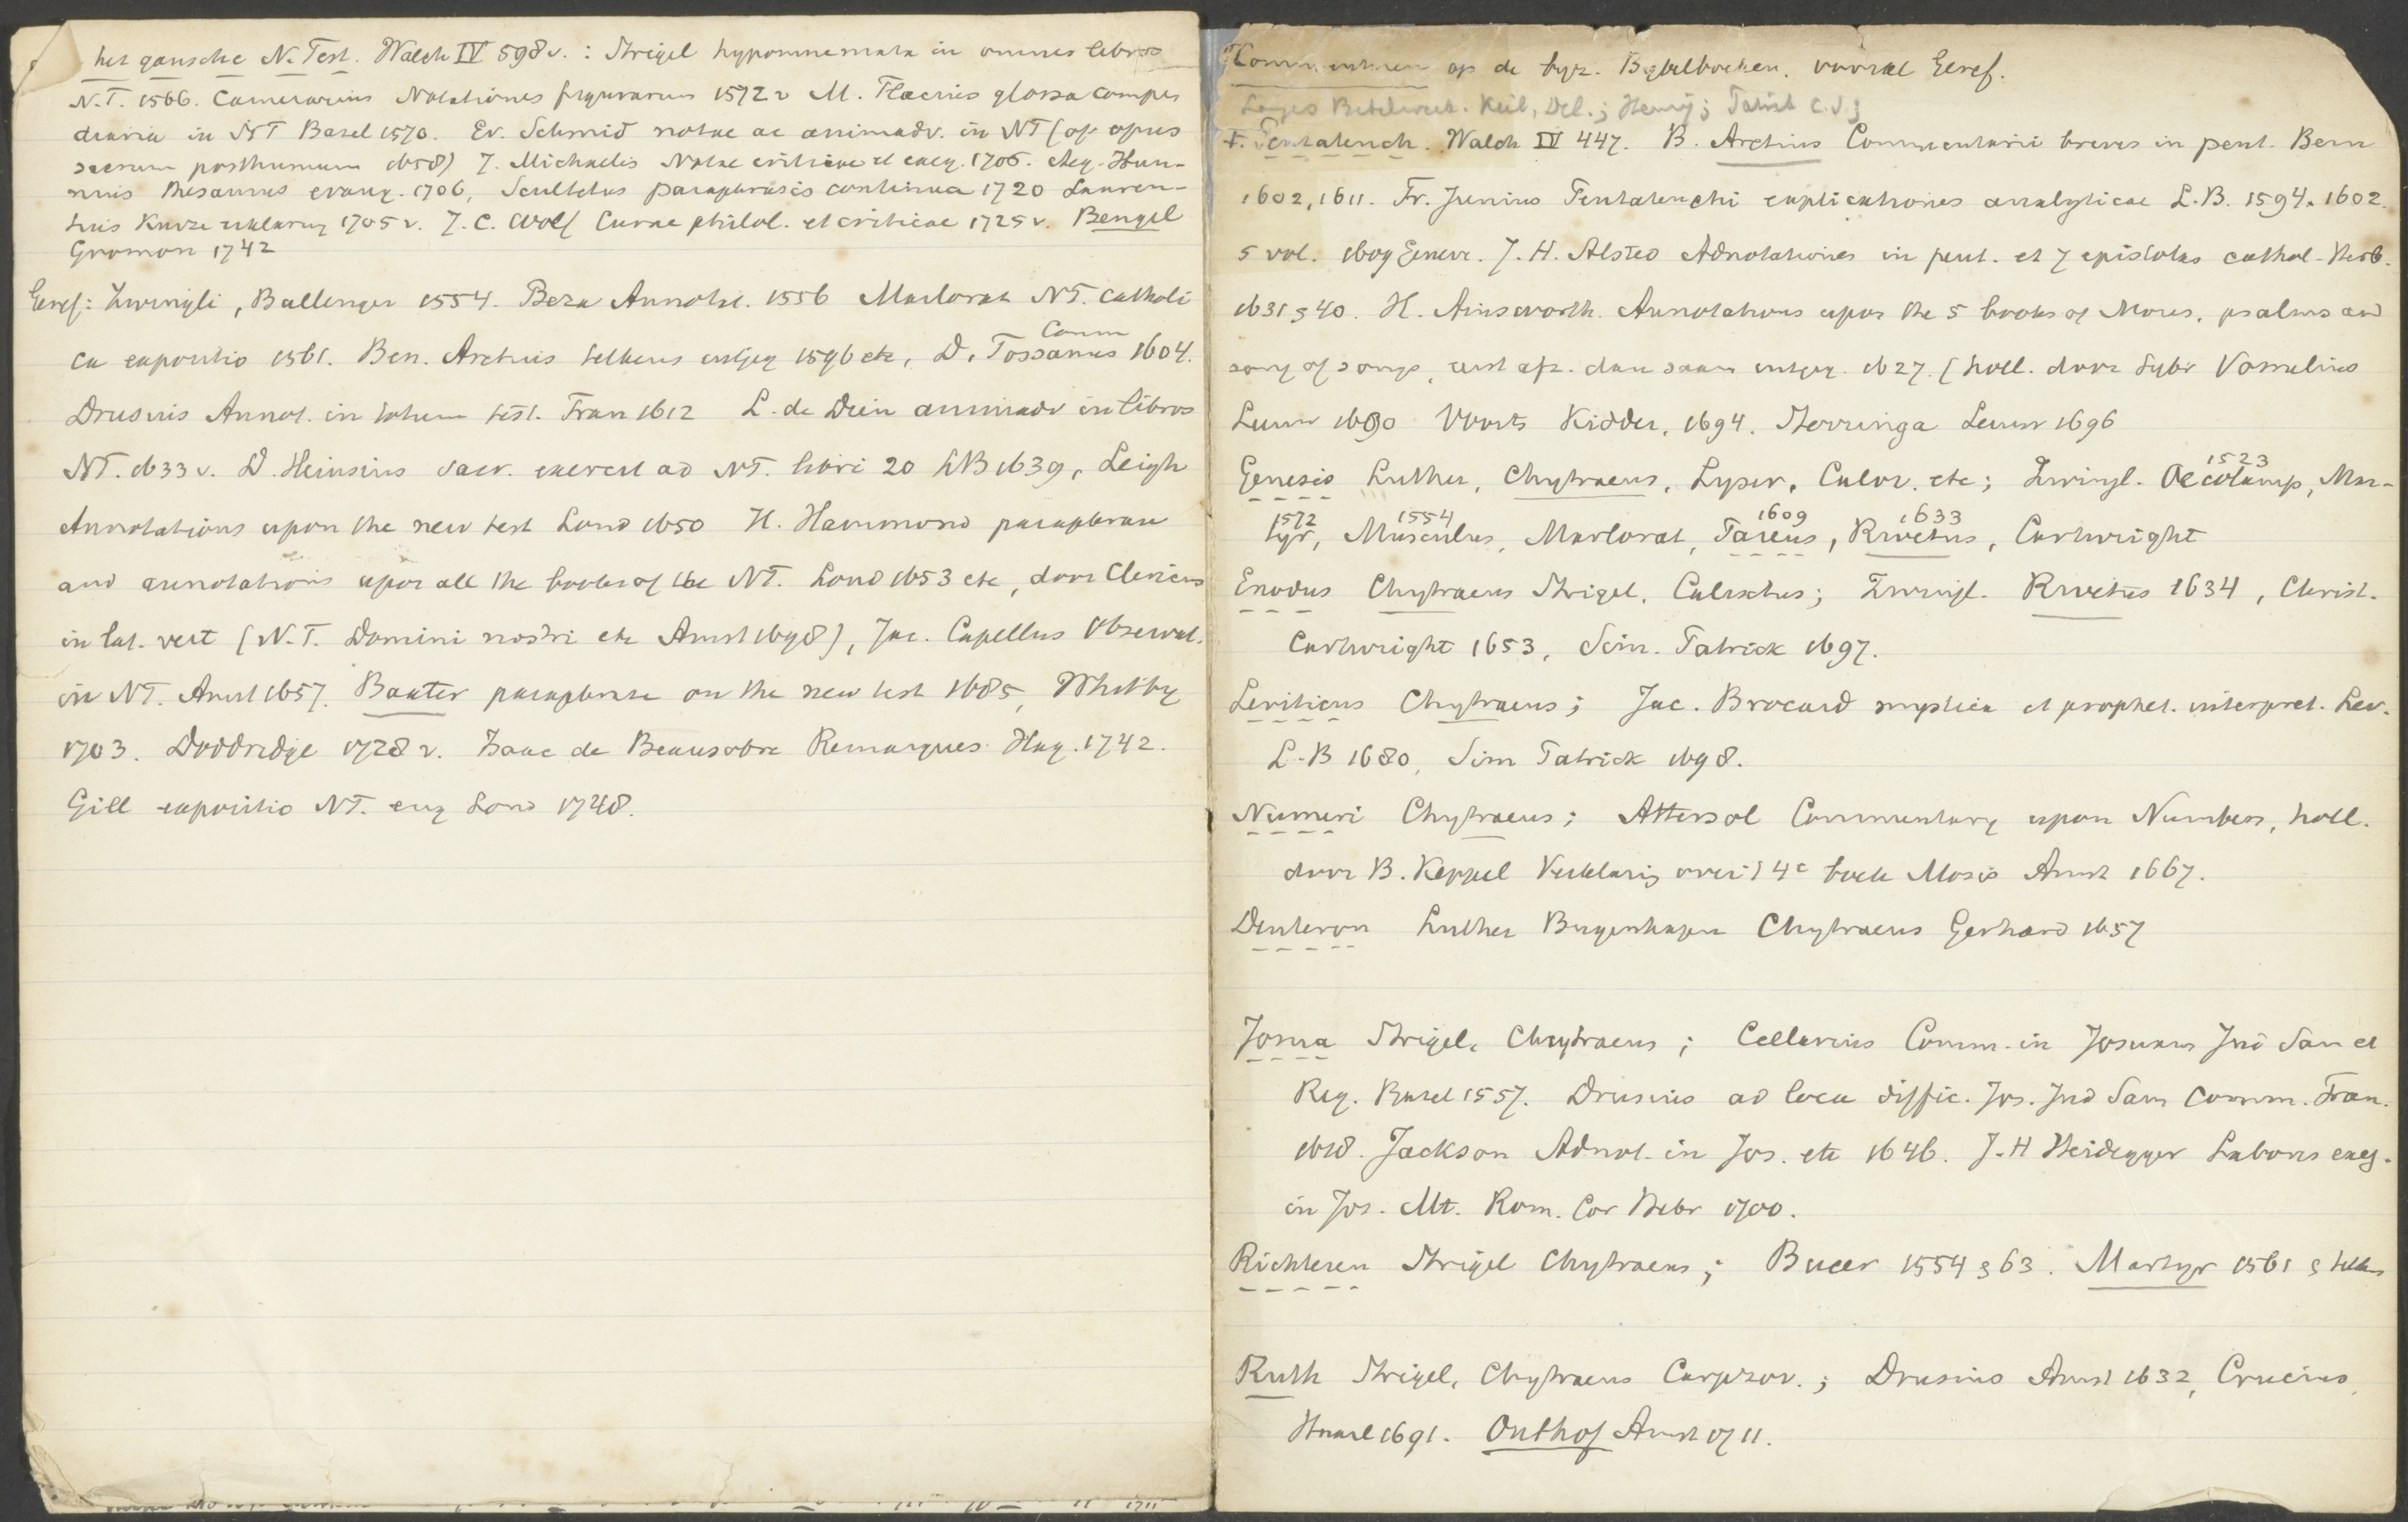 het gansche N. Test. Walch IV 598 v. : Strigel hypomnemata in omnes libros
N.T. 1566. Camerarius Notationes figurarum 1572 v M. Flacius glossa compen
diaria in NT Basel 1570. Er. Schmid notae ac animadv. in NT (op. opus
sacrum posthumum 1658) J. Michaelis Notae criticae et exeg. 1706. Aeg. Hun-
nius thesaurus evang. 1706, Scultetus paraphrasis continua 1720 Lauren-
tius Kurze erklarung 1705 v. J. C. Wolf Curae philol. et criticae 1725 v. Bengel
Gnomon 1742
Geref: Zwingli, Bullenger 1554. Beza Annotat. 1556 Marlorat NT. catholi
ca expositio 1561. Ben. Aretius telkens uitgeg 1596 etc, D. Tossanus Comm 1604.
Drusius Annot. in totum test. Fran 1612 L. de Dieu animadv in libros
NT. 1633 v. D. Heinsius sacr. exercit ad NT. libri 20 LB 1639, Leigh
Annotations upon the new test Lond 1650 H. Hammond paraphrase
and annotations upon all the books of the NT. Lond 1653 etc, door Clericus
in lat. vert (N.T. Domini nostri etc Amst 1698), Jac. Capellus Observat.
in NT. Amst 1657. Baxter paraphrase on the new test 1685, Whitby
1703. Doddredge 1728 v. Isaac de Beausobre Remarques Hag. 1742.
Gill expositio NT. eng Lond 1748.
Commentaren op de byz. Bijbelboeken. vooral Geref.
Langes Bibelwerk. Keil, Del.; Henry; Patrick c.s;
Pentateuch. Walch IV 447. B. Aretius Commentarii breves in pent. Bern
1602, 1611. Fr. Junius Pentateuchi explicationes analyticae L.B. 1594. 1602.
5 vol. 1609 Genev. J. H. Alsted Adnotationes in pent. et 7 epistolas cathol. Herb.
1631 & 40. H. Ainsworth. Annotations upon the 5 books of Moses, psalms and
song of songs, eerst afz. dan saam uitgeg. 1627. (holl. door Sybr Vomelius
Leuw 1690 Voorts Kidder, 1694. Herringa Leuw 1696
Genesis Luther, Chytraeus, Lyser, Calov. etc; Zwingl. Oecolamp 1523, Mar-
tyr 1572, Musculus 1554, Marlorat, Pareus 1609, Rivetus 1633, Cartwright
Exodus Chytraeus Strigel, Calixtus; Zwingl. Rivetus 1634, Christ.
Cartwright 1653, Sim. Patrick 1697.
Leviticus Chytraeus; Jac. Brocard mystica et prophet. interpret. Lev.
L.B 1680, Sim Patrick 1698.
Numeri Chytraeus; Attersol Commentary upon Numbers, holl.
door B. Keppel Verklaring over 't 4e boek Mosis Amst 1667.
Deuteron Luther Bugenhagen Chytraeus Gerhard 1657
Josua Strigel, Chytraeus; Cellarius Comm. in Josuam Jud Sam et
Reg. Basel 1557. Drusius ad loca diffic. Jos. Jud Sam Comm. Fran.
1618. Jackson Adnot. in Jos. etc 1646. J. H Heidegger Labores exeg.
in Jos. Mt. Rom. Cor Hebr 1700.
Richteren Strigel Chytraeus; Bucer 1554 & 63. Martyr 1561 & telkens
Ruth Strigel, Chytraeus Carpzov.; Drusius Amst 1632, Crucius
Haarl 1691. Outhof Amst 1711.